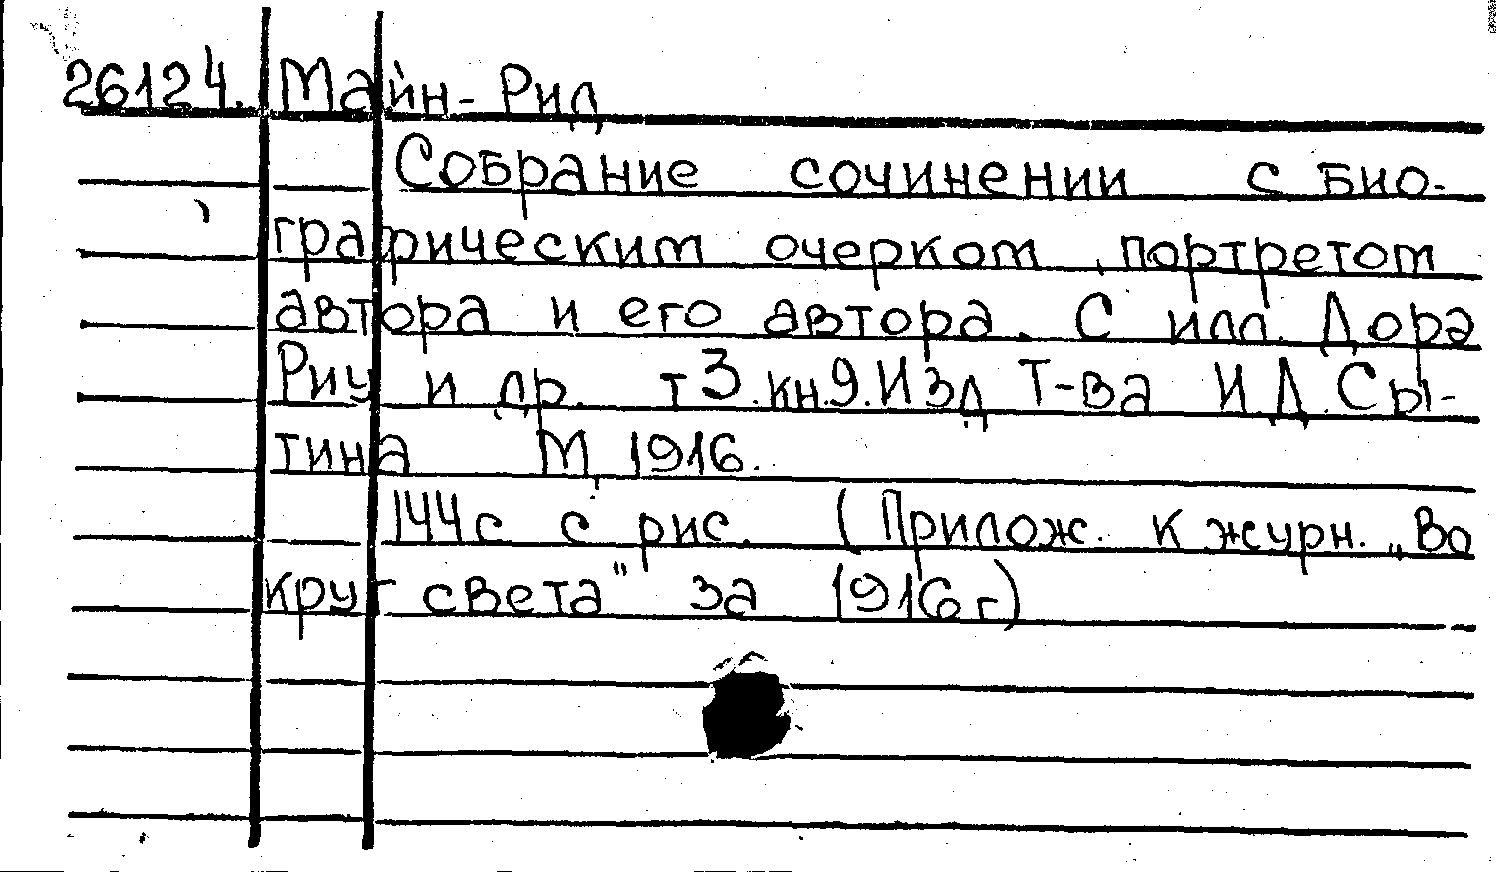 26124. Майн-Рид
Собрание сочинении с био-
графическим очерком, портретом
автора и его автора. С илл. Дора
Риу и др. т 3. кн. 9. Изд Т-ва И Д Сы-
тина М, 1916.
144 с с рис. (Прилож. к журн. „Во
круг света" за 1916 г)